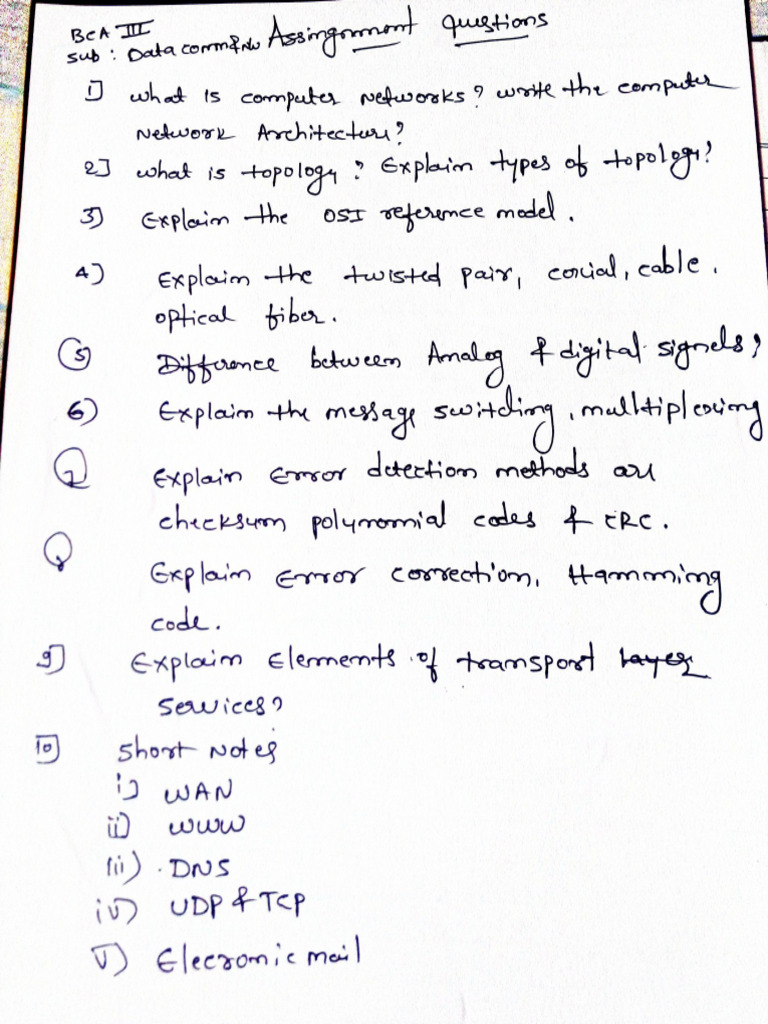 BCA III
Sub : Data comm & Nw Assingnment Questions
1] what is computer networks? write the computer
Network Architecture?
2] what is topology? Explain types of topology?
3) Explain the OSI reference model.
4) Explain the twisted pair, coxial, cable,
optical fiber.
5 Difference between Analog & digital signals?
6) Explain the message switching, mulltiplexing
7 Explain Error detection methods are
checksum polynomial codes & CRC.
8 Explain Error correction, Hamming
code.
9] Explain Elements of transport layer
Services?
10 Short Notes
i) WAN
ii) WWW
iii) DNS
iv) UDP & TCP
v) Elecronic mail